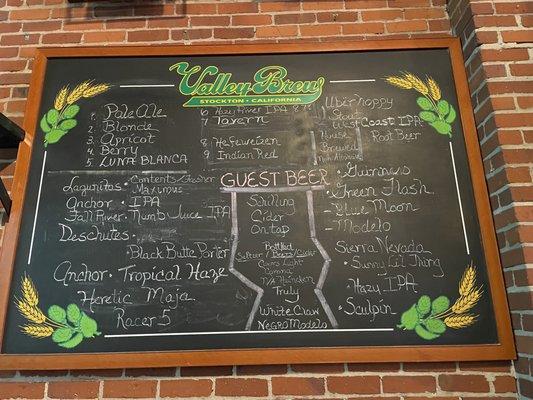 Valley Brew
STOCKTON • CALIFORNIA
1. Pale Ale
2. Blonde
3. Apricot
4. Berry
5. LUNA BLANCA
6 Hazy River IPA
7 Tavern
8 Hefeweizen
9 Indian Red
Stout
West Coast IPA
House
Brewed
Root Beer
Non Alcoholic
GUEST BEER
Lagunitas •
Maximus
Anchor • IPA
Fall River • Numb Juice IPA
Deschutes •
• Black Butte Porter
Anchor • Tropical Haze
Heretic Maja
Racer 5
Cider
on tap
Bottled
Seltzer / Beers / Cider
Coors Light
Corona
Heineken
Truly
White Claw
NEGRO Modelos
• Guinness
• Green Flash
• Blue Moon
• Modelo
Sierra Nevada
• Sunny Lil Thing
Hazy IPA
• Sculpin